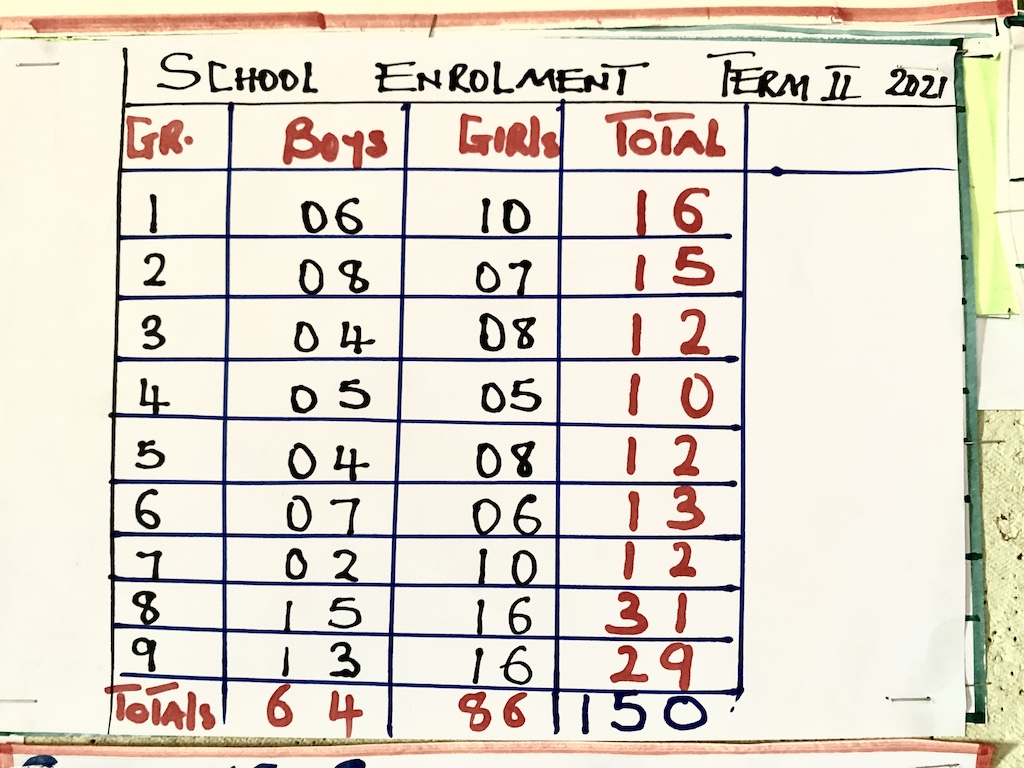 SCHOOL ENROLMENT TERM II 2021
GR. Boys GIRls TOTAL
1 06 10 16
2 08 07 15
3 04 08 12
4 05 05 10
5 04 08 12
6 07 06 13
7 02 10 12
8 15 16 31
9 13 16 29
TOTAls 64 86 150